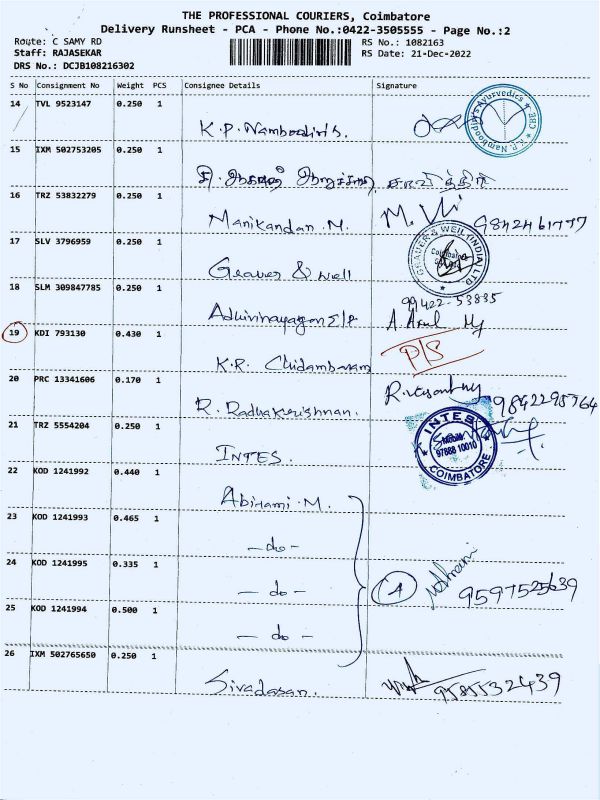 THE PROFESSIONAL COURIERS, Coimbatore
Delivery Runsheet - PCA - Phone No.:0422-3505555 - Page No.:2
Route: C SAMY RD
RS No.: 1082163
Staff: RAJASEKAR
RS Date: 21-Dec-2022
DRS No.: DCJB108216302
S No Consignment No Weight PCS Consignee Details Signature
14 TVL 9523147 0.250 1
K.P. Namboodiris.
K.P. Namboodiri's Ayurvedics 383
15 IXM 502753205 0.250 1
16 TRZ 53832279 0.250 1
Manikandan .M. 9842461777
17 SLV 3796959 0.250 1
Grauer & Well
GRAUER & WEIL (INDIA) LTD
Coimbatore
18 SLM 309847785 0.250 1
99422-53835
A. Arul
19 KDI 793130 0.430 1
K.R. Chidambaram
P/S
20 PRC 13341606 0.170 1
R. Radhakrishnan. 9842295764
21 TRZ 5554204 0.250 1
INTES.
INTES
97888 10010
COIMBATORE
22 KOD 1241992 0.440 1
Abirami .M.
23 KOD 1241993 0.465 1
- do -
24 KOD 1241995 0.335 1
- do -
4 9597525639
25 KOD 1241994 0.500 1
- do -
26 IXM 502765650 0.250 1
Sivadasan. 9585532439